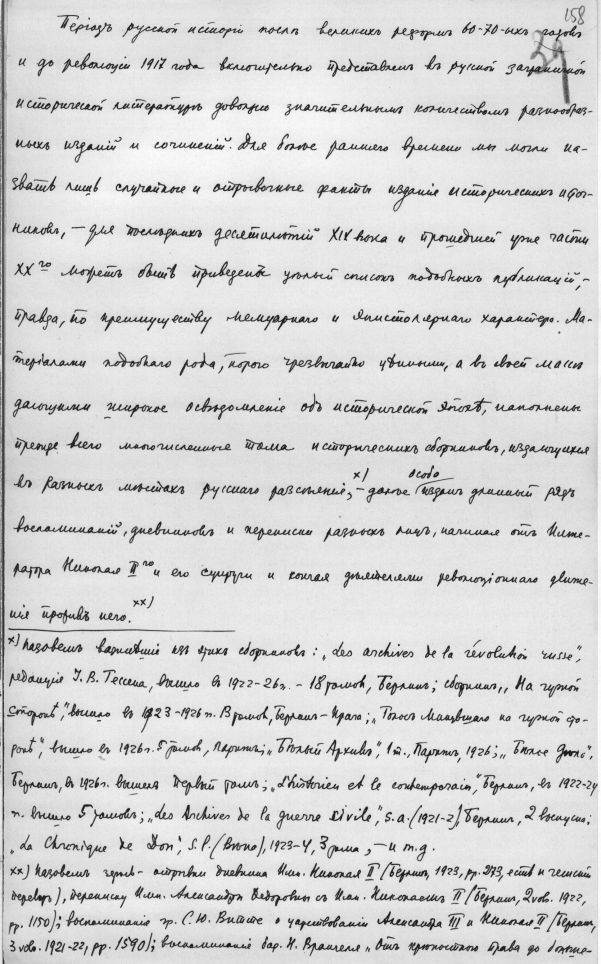 158
34
Періодъ русской исторіи послѣ великихъ реформъ 60-70-ыхъ годовъ
и до революціи 1917 года включительно представленъ въ русской заграничной
исторической литературѣ довольно значительнымъ количествомъ разнообраз-
ныхъ изданій и сочиненій. Для болѣе ранняго времени мы могли на-
звать лишь случайные и отрывочные факты изданія историческихъ источ-
никовъ, — для послѣднихъ десятилѣтій XIX вѣка и прошедшей уже части
XX го можетъ быть приведенъ цѣлый списокъ подобныхъ публикацій, —
правда, по преимуществу мемуарнаго и эпистолярнаго характера. Ма-
теріалами подобнаго рода, порою чрезвычайно цѣнными, а въ своей массѣ
дающими широкое освѣдомленіе объ исторической эпохѣ, наполнены
прежде всего многочисленные тома историческихъ сборниковъ, издающихся
въ разныхъ мѣстахъ русскаго разсѣянія, x) — далѣе особо изданъ длинный рядъ
воспоминаній, дневниковъ и переписки разныхъ лицъ, начиная отъ Импе-
ратора Николая II го и его супруги и кончая дѣятелями революціоннаго движе-
нія противъ него. xx)
x) Назовемъ важнѣйшіе изъ этихъ сборниковъ: „Les archives de la révolution russe",
редакція І. В. Гессена, вышло въ 1922-26 г. – 18 томовъ, Берлинъ; сборникъ „На чужой
сторонѣ", вышло въ 1923-1926 г. 13 томовъ, Берлинъ - Прага; „Голосъ Минувшаго на чужой сто-
ронѣ", вышло въ 1926 г. 5 томовъ, Парижъ; „Бѣлый Архивъ", 1 т., Парижъ, 1926; „Бѣлое дѣло",
Берлинъ, въ 1926 г. вышелъ первый томъ; „L'historien et le contemporain", Берлинъ, въ 1922-24
г. вышло 5 томовъ; „Les Archives de la guerre civile", s.a. (1921-2), Берлинъ, 2 выпуска;
„La Chronique de Don", s.l. (Вѣна), 1923-4, 3 тома, — и т.д.
xx) Назовемъ отрывки дневника Имп. Николая II (Берлинъ, 1923, pp. 273, есть и чешскій
переводъ), переписку Имп. Александры Ѳедоровны съ Имп. Николаемъ II (Берлинъ, 2 vol. 1922,
pp. 1150); воспоминанія гр. С. Ю. Витте о царствованіи Александра III и Николая II (Берлинъ,
3 vol. 1921-22, pp. 1590); воспоминанія бар. Н. Врангеля „Отъ крѣпостного права до больше-